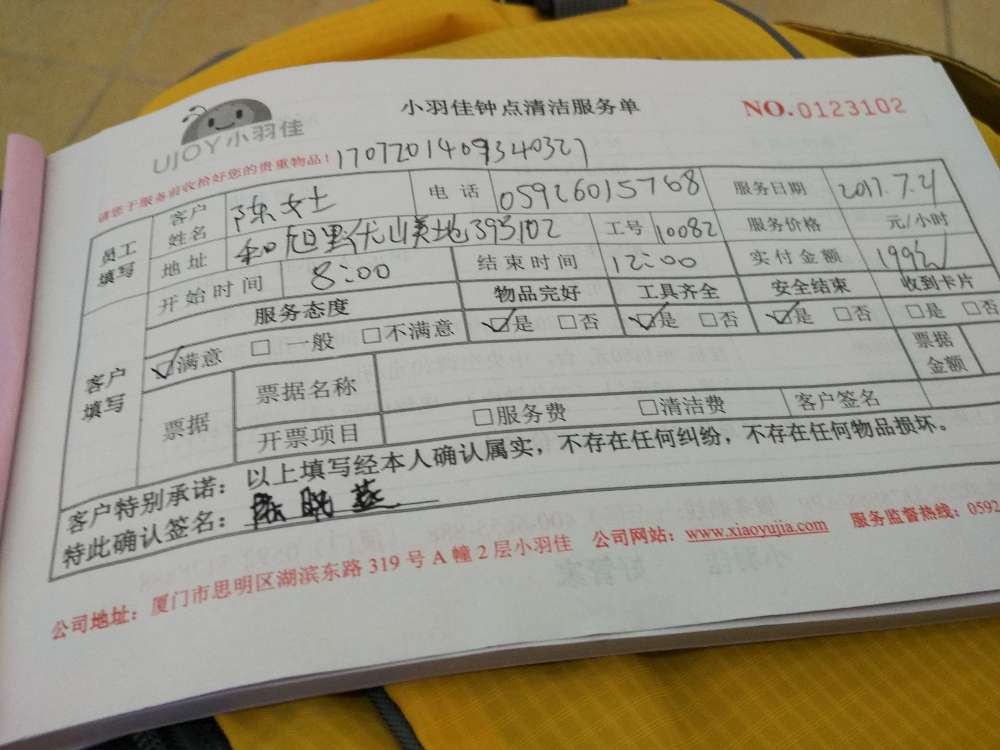 小羽佳钟点清洁服务单 NO.0123102
UJOY小羽佳
请您于服务前收拾好您的贵重物品!
员工填写 客户姓名 陈女士 电话 05926015768 服务日期 2017.7.21
地址 和旭里优山美地393102 工号 10082 服务价格 元/小时
开始时间 8:00 结束时间 12:00 实付金额
客户填写 服务态度 物品完好 工具齐全 安全结束 收到卡片
☑满意 □一般 □不满意 ☑是 □否 ☑是 □否 ☑是 □否 □是 □否
票据 票据名称 票据金额
开票项目 □服务费 □清洁费 客户签名
客户特别承诺:以上填写经本人确认属实,不存在任何纠纷,不存在任何物品损坏。
特此确认签名:
公司地址:厦门市思明区湖滨东路319号A幢2层小羽佳 公司网站:www.xiaoyujia.com 服务监督热线:0592